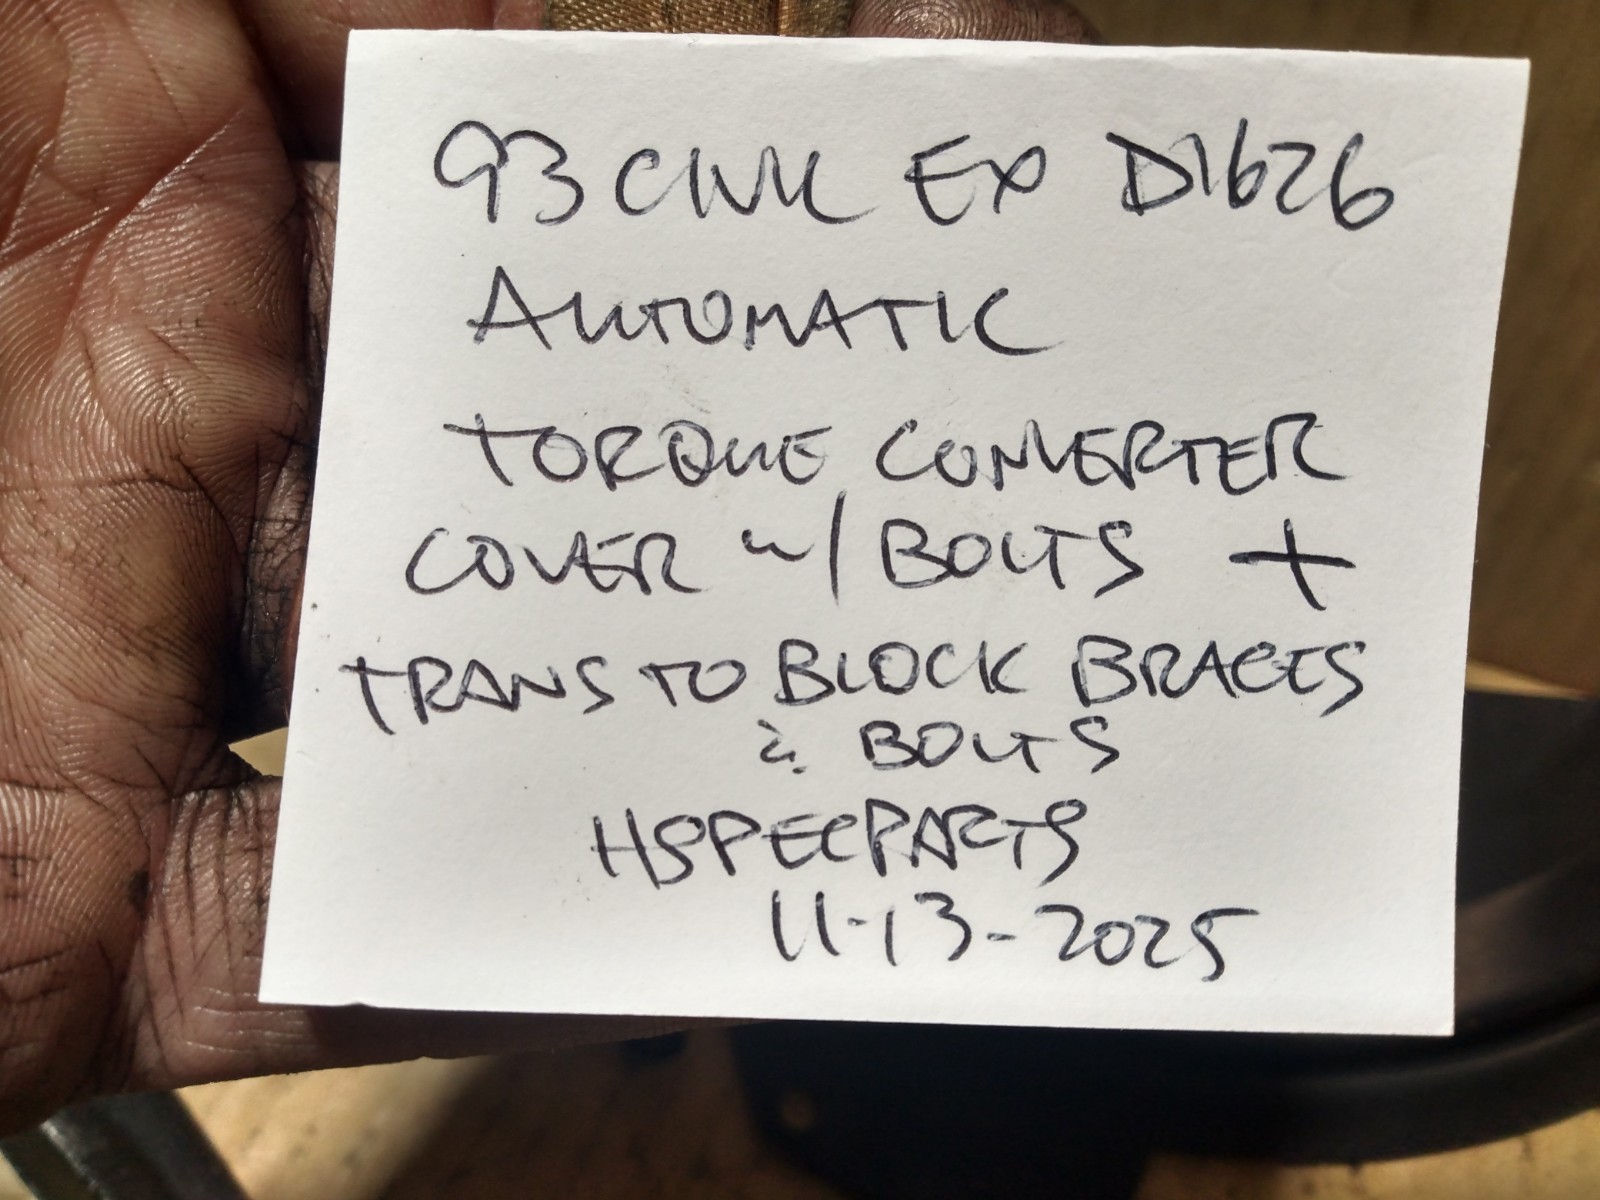 93 CIVIC EX D16Z6
AUTOMATIC
TORQUE CONVERTER
COVER w/ BOLTS +
TRANS TO BLOCK BRACES
& BOLTS
HSPECPARTS
11-13-2025